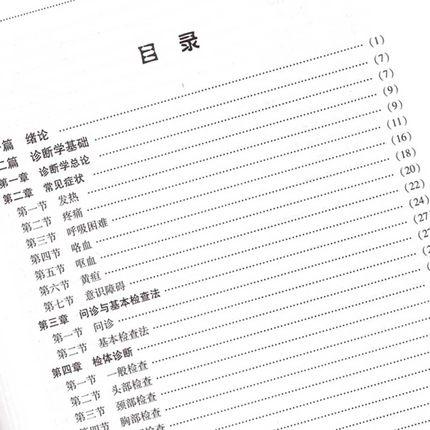 目录
篇 绪论 (1)
二篇 诊断学基础 (7)
第一章 诊断学总论 (7)
第二章 常见症状 (9)
第一节 发热 (9)
第二节 疼痛 (11)
第三节 呼吸困难 (16)
第四节 咯血 (18)
第五节 呕血 (20)
第六节 黄疸 (22)
第七节 意识障碍 (24)
第三章 问诊与基本检查法 (27
第一节 问诊 (27
第二节 基本检查法
第四章 检体诊断
第一节 一般检查
第二节 头部检查
第三节 颈部检查
第四节 胸部检查